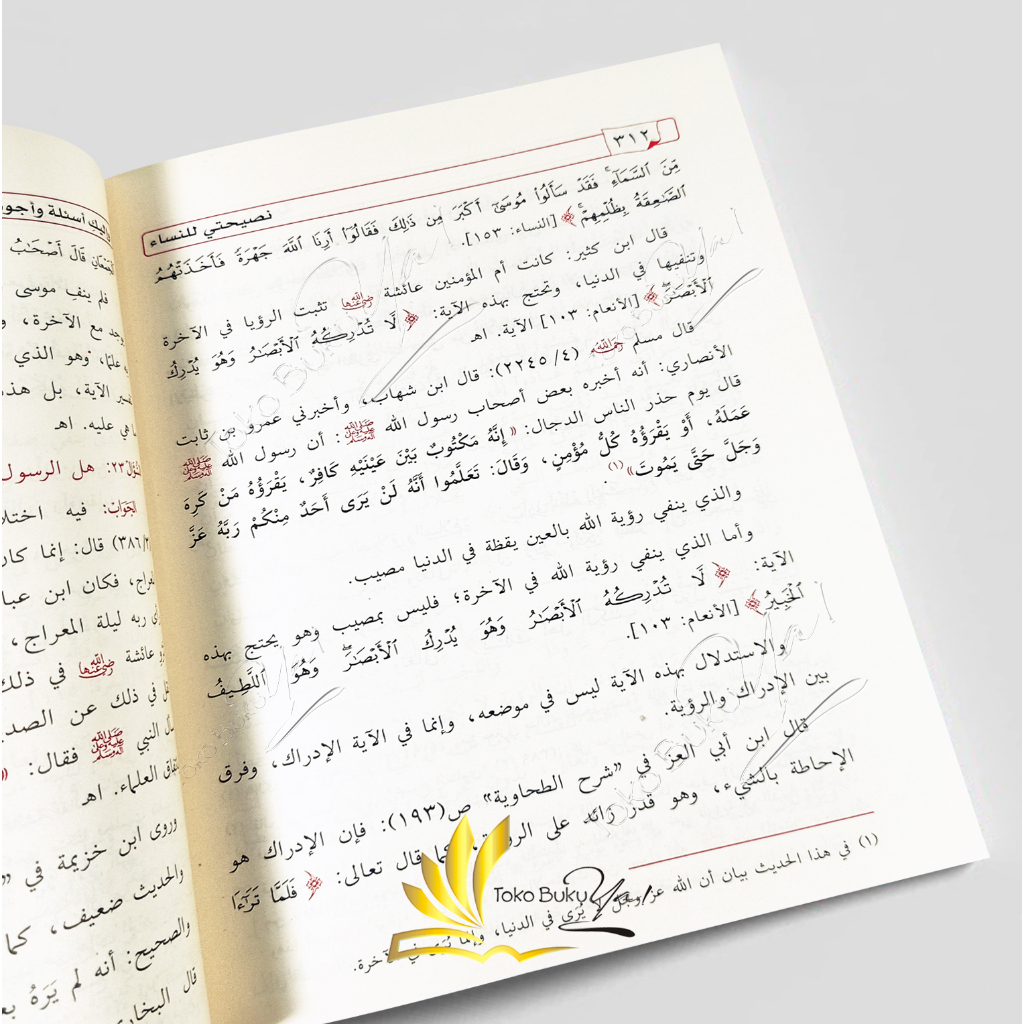 ٣١٢
نصيحتي للنساء
مِّنَ ٱلسَّمَآءِۚ فَقَدۡ سَأَلُواْ مُوسَىٰٓ أَكۡبَرَ مِن ذَٰلِكَ فَقَالُوٓاْ أَرِنَا ٱللَّهَ جَهۡرَةٗ فَأَخَذَتۡهُمُ
ٱلصَّٰعِقَةُ بِظُلۡمِهِمۡۚ ﴾ [النساء: ١٥٣].
قال ابن كثير: كانت أم المؤمنين عائشة رضي الله عنها تثبت الرؤيا في الآخرة
وتنفيها في الدنيا، وتحتج بهذه الآية: ﴿ لَّا تُدۡرِكُهُ ٱلۡأَبۡصَٰرُ وَهُوَ يُدۡرِكُ
ٱلۡأَبۡصَٰرَۖ ﴾ [الأنعام: ١٠٣] الآية. اهـ
قال مسلم رحمه الله (٤/ ٢٢٤٥): قال ابن شهاب، وأخبرني عمرو بن ثابت
الأنصاري: أنه أخبره بعض أصحاب رسول الله ﷺ: أن رسول الله ﷺ
قال يوم حذر الناس الدجال: «إِنَّهُ مَكْتُوبٌ بَيْنَ عَيْنَيْهِ كَافِرٌ، يَقْرَؤُهُ مَنْ كَرِهَ
عَمَلَهُ، أَوْ يَقْرَؤُهُ كُلُّ مُؤْمِنٍ، وَقَالَ: تَعَلَّمُوا أَنَّهُ لَنْ يَرَى أَحَدٌ مِنْكُمْ رَبَّهُ عَزَّ
وَجَلَّ حَتَّى يَمُوتَ»(١).
والذي ينفي رؤية الله بالعين يقظة في الدنيا مصيب.
وأما الذي ينفي رؤية الله في الآخرة؛ فليس بمصيب وهو يحتج بهذه
الآية: ﴿ لَّا تُدۡرِكُهُ ٱلۡأَبۡصَٰرُ وَهُوَ يُدۡرِكُ ٱلۡأَبۡصَٰرَۖ وَهُوَ ٱللَّطِيفُ
ٱلۡخَبِيرُ ﴾ [الأنعام: ١٠٣].
والاستدلال بهذه الآية ليس في موضعه، وإنما في الآية الإدراك، وفرق
بين الإدراك والرؤية.
قال ابن أبي العز في «شرح الطحاوية» ص(١٩٣): فإن الإدراك هو
الإحاطة بالشيء، وهو قدر زائد على قال تعالى: ﴿ فَلَمَّا تَرَٰٓءَا
(١) في هذا الحديث بيان أن الله عز وجل لا يُرَى في الدنيا، وإنما يُرَى في الآخرة.
أسئلة وأجوبة
قَالَ أَصۡحَٰبُ
فلم ينفِ موسى
مع الآخرة، و
وهو الذي
الآية، بل هذه
هي عليه. اهـ
٢٣: هل الرسول
فيه اختلا
٣٨٦) قال: إنما كان
فكان ابن عبا
ربه ليلة المعراج،
عائشة رضي الله عنها في ذلك
في ذلك عن الصد
النبي ﷺ فقال: «
العلماء. اهـ
وروى ابن خزيمة في «
والحديث ضعيف، كما
والصحيح: أنه لم يَرَهُ بع
قال البخار
Toko Buku Yusuf